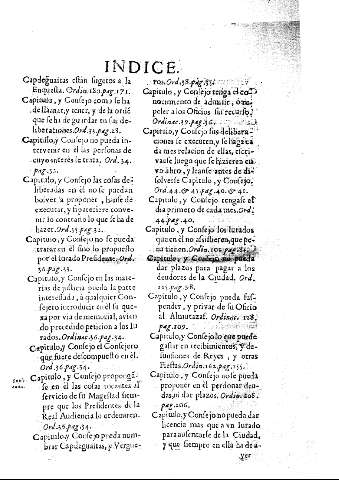 INDICE.
Capdeguaitas están sugetos a la
Enquesta. Ordin. 180. pag. 171.
Capitulo, y Consejo como se ha
de llamar, y tener, y de la orden
que se ha de guardar en sus de-
liberationes. Ord. 33. pag. 28.
Capitulo, y Consejo no pueda in-
tervenir en el las personas de
cuyo interés se trata. Ord. 34.
pag. 32.
Capitulo, y Consejo las cosas de-
liberadas en él no se puedan
bolver a proponer, hasta de
executar, y si pareciere conve-
nir lo contrario lo que se ha de
hazer. Ord. 35. pag. 32.
Capitulo, y Consejo no se pueda
tratar en él sino lo propuesto
por el Jurado Presidente. Ord.
pag. 33.
Capitulo, y Consejo en las mate-
rias de justicia pueda la parte
interessada, à qualquier Con-
sejero introducir en él su que-
xa por via de memorial, avien-
do precedido peticion a los Ju-
rados. Ordinac. 36. pag. 34.
Capitulo, y Consejo el Consejero
que fuere descompuesto en él.
Ord. 36. pag. 34.
Capitulo, y Consejo propongá-
se en él las cosas tocantes al
servicio de su Magestad siem-
pre que los Presidentes de la
Real Audiencia lo ordenaren.
Ord. 36. pag. 34.
Capitulo, y Consejo pueda nom-
brar Capdeguaitas, y Vergue-
ros. Ord. 38. pag. 35.
Capitulo, y Consejo tenga el co-
nocimiento de admitir, ò re-
peler a los Oficios su recurso.
Ordinac. 39. pag. 36.
Capitulo, y Consejo sus delibera-
ciones se executen, y se haga ca-
da mes relacion de ellas, escri-
vanse luego que se hizieren en
un libro, y leanse antes de di-
solverse Capitulo, y Consejo.
Ord. 44. & 45. pag. 40. & 41.
Capitulo, y Consejo tengase el
dia primero de cada mes. Ord.
44. pag. 40.
Capitulo, y Consejo los Jurados
quien él no assistieren, que pe-
na tienen. Ordin.
Capitulo, y Consejo no pueda
dar plazos para pagar a los
deudores de la Ciudad. Ord.
pag. 58.
Capitulo, y Consejo pueda sus-
pender, y privar de su Oficio
al Almutazaf. Ordinac. 118.
pag. 109.
Capitulo, y Consejo lo que puede
gastar en recibimientos, y de-
funsiones de Reyes, y otras
Fiestas. Ordin. 162. pag. 155.
Capitulo, y Consejo no se pueda
proponer en él perdonar deu-
das, ni dar plazos. Ordin. 206.
pag. 206.
Capitulo, y Consejo no pueda dar
licencia mas que a un Jurado
para ausentarse de la Ciudad,
y que siempre en ella ha de a-
ver